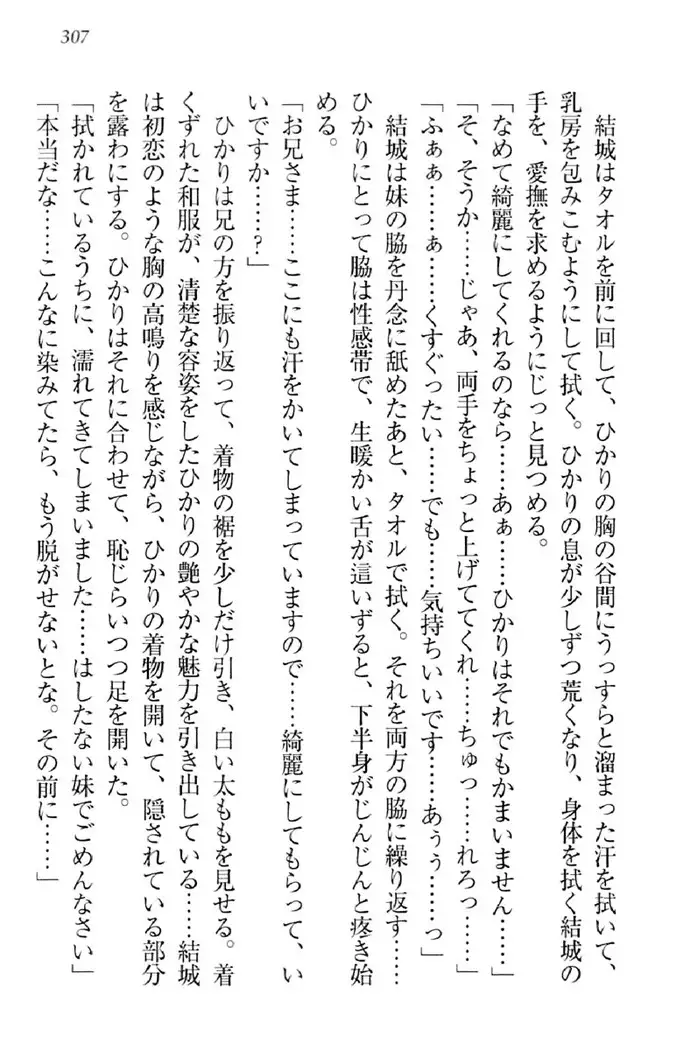 307
結城はタオルを前に回して、ひかりの胸の谷間にうっすらと溜まった汗を拭いて、
乳房を包みこむようにして拭く。ひかりの息が少しずつ荒くなり、身体を拭く結城の
手を、愛撫を求めるようにじっと見つめる。
「なめて綺麗にしてくれるのなら……あぁ……ひかりはそれでもかまいません……」
「そ、そうか……じゃあ、両手をちょっと上げててくれ……ちゅっ……れろっ……」
「ふぁぁ……ぁ……くすぐったい……でも……気持ちいいです……あぅぅ……っ」
結城は妹の脇を丹念に舐めたあと、タオルで拭く。それを両方の脇に繰り返す……
ひかりにとって脇は性感帯で、生暖かい舌が這いずると、下半身がじんじんと疼き始
める。
「お兄さま……ここにも汗をかいてしまっていますので……綺麗にしてもらって、い
いですか……？」
ひかりは兄の方を振り返って、着物の裾を少しだけ引き、白い太ももを見せる。着
くずれた和服が、清楚な容姿をしたひかりの艶やかな魅力を引き出している……結城
は初恋のような胸の高鳴りを感じながら、ひかりの着物を開いて、隠されている部分
を露わにする。ひかりはそれに合わせて、恥じらいつつ足を開いた。
「拭かれているうちに、濡れてきてしまいました……はしたない妹でごめんなさい」
「本当だな……こんなに染みてたら、もう脱がせないとな。その前に……」